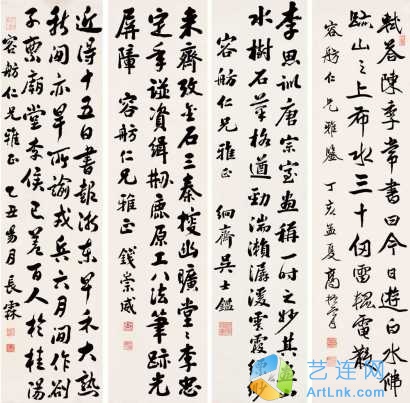 軾答陳季常書曰今日遊白水佛
跡山之上布水三十仞雷輥電散
容舫仁兄雅鑒 丁亥孟夏高振霄
李思訓唐宗室畫稱一時之妙其畫山
水樹石筆格遒勁湍瀨潺湲雲霞縹緲
容舫仁兄雅正 絅齋吳士鑑
来齊攷金石三秦搜幽曠堂之李忠
定年資緝原工八法筆跡光
屏障 容舫仁兄雅正 錢崇威
近得十五日書報浙東早禾大熟
秋間亦旱所諭戎兵六月間作劄
子稟廟堂李侯已差百人於桂陽
容舫仁兄雅正 乙丑昜月 長霖
艺连网
ArtLnk.Com